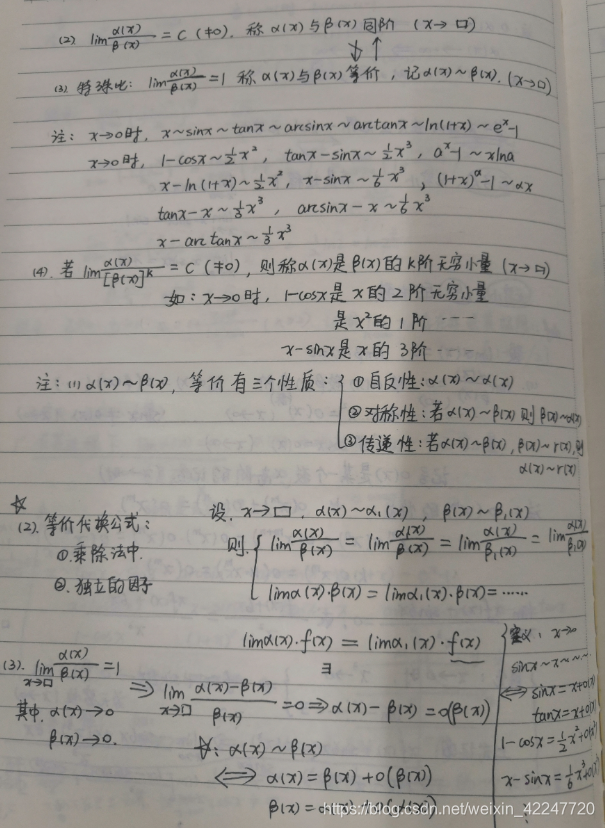 (2) lim α(x)/β(x) = C (≠0). 称 α(x)与β(x)同阶 (x→□)
(3) 特殊地: lim α(x)/β(x) = 1 称 α(x)与β(x)等价, 记α(x)~β(x). (x→□)
注: x→0时, x~sinx~tanx~arcsinx~arctanx~ln(1+x)~eˣ-1
x→0时, 1-cosx~½x², tanx-sinx~½x³, aˣ-1~xlna
x-ln(1+x)~½x², x-sinx~⅙x³, (1+x)^α-1~αx
tanx-x~⅓x³, arcsinx-x~⅙x³
x-arctanx~⅓x³
(4). 若 lim α(x)/[β(x)]^k = C (≠0), 则称α(x)是β(x)的k阶无穷小量 (x→□)
如: x→0时, 1-cosx是x的2阶无穷小量
是x²的1阶 ····
x-sinx是x的3阶 ····
注: (1) α(x)~β(x), 等价有三个性质: ①自反性: α(x)~α(x)
②对称性: 若α(x)~β(x) 则β(x)~α(x)
③传递性: 若α(x)~β(x), β(x)~r(x), 则
α(x)~r(x)
☆
(2). 等价代换公式:
①.乘除法中.
②.独立的因子
设. x→□, α(x)~α₁(x), β(x)~β₁(x)
则. lim α(x)/β(x) = lim α₁(x)/β(x) = lim α(x)/β₁(x) = lim α₁(x)/β₁(x)
limα(x)·β(x) = limα₁(x)·β(x) = ······
limα(x)·f(x) = limα₁(x)·f(x)
∃
(3). lim x→□ α(x)/β(x) = 1
其中. α(x)→0
β(x)→0.
⇒ lim x→□ α(x)-β(x)/β(x) = 0 ⇒ α(x)-β(x) = o(β(x))
☆: α(x)~β(x)
⇔ α(x) = β(x)+o(β(x))
β(x) =
定义: x→0
sinx~x~····
⇔ sinx = x+o(x)
tanx = x+o(x)
1-cosx = ½x²+o(x²)
x-sinx = ⅙x³+o(x³)
https://blog.csdn.net/weixin_42247720